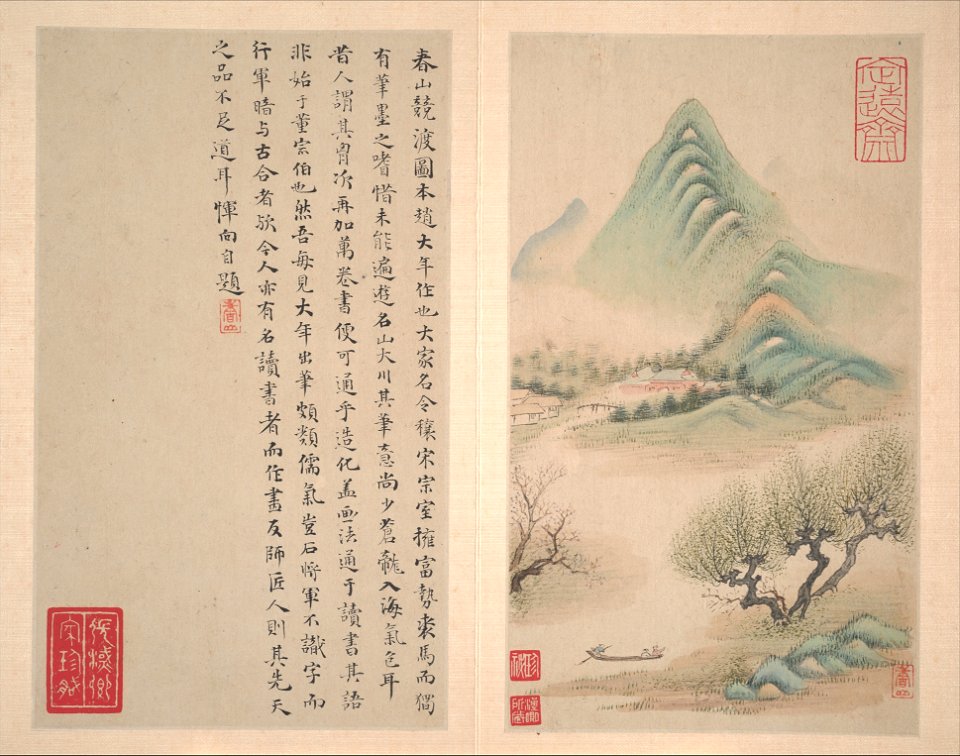 春山競渡圖本趙大年作也大家名令穰宋宗室擁富勢裘馬而獨
有筆墨之嗜惜未能遍遊名山大川其筆意尚少蒼龍入海氣色耳
昔人謂其胷次再加萬卷書便可通乎造化盖画法通于讀書其語
非始于董宗伯也然吾每見大年出筆頗類儒氣豈石將軍不識字而
行軍暗与古合者欤今人亦有名讀書者而作畫反師匠人則其先天
之品不足道耳惲向自題
香山
定遠齋
香山